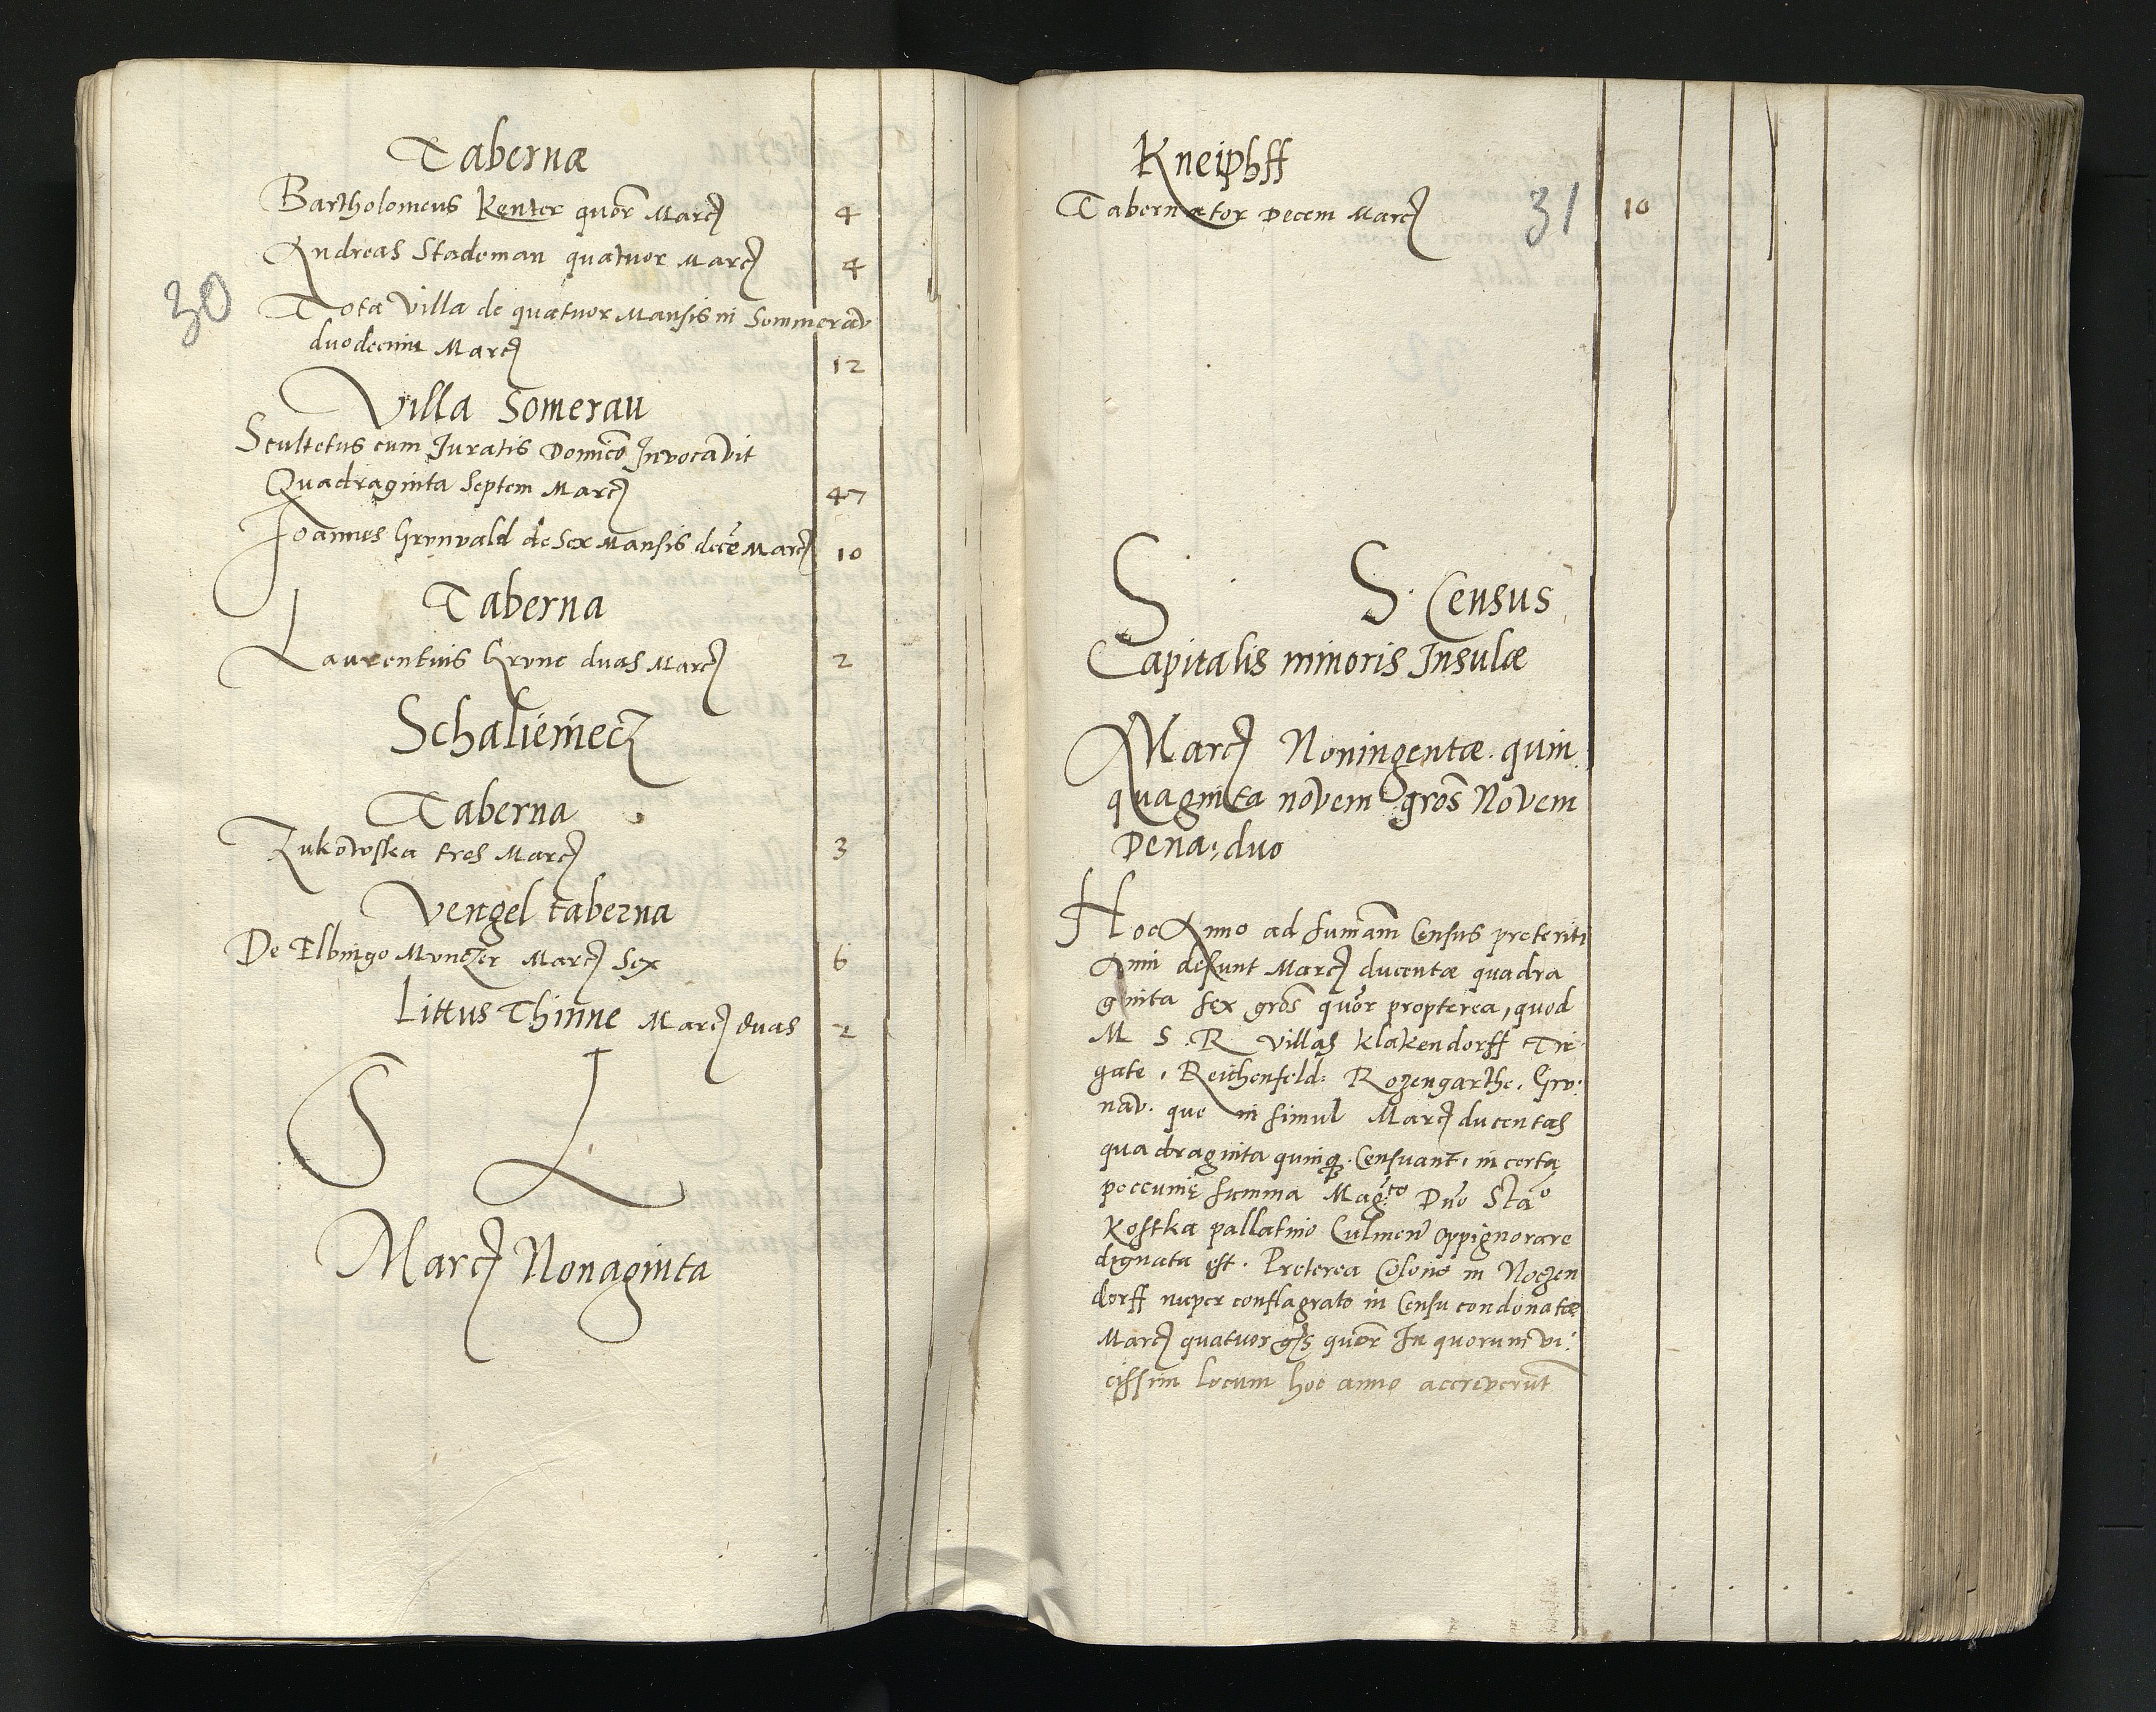 Tabernæ
Bartholomeus Kenter quor̃ Marcꝭ 4
Andreas Stademan quatuor Marcꝭ 4
30
Tota Villa de quatuor Mansis in Sommerav
duodecim Marcꝭ 12
Villa Somerau
Scultetus cum Juratis Domico̅ Invocavit
Quadraginta Septem Marcꝭ 47
Joannes Grunvald de Sex Mansis dece̅ Marcꝭ 10
Taberna
Laurentius Grune duas Marcꝭ 2
Schaliemecz
Taberna
Zukowska tres Marcꝭ 3
Vengel taberna
De Elbingo Munczer Marcꝭ Sex 6
Littus Thinne Marcꝭ duas 2
S L
Marcꝭ Nonaginta
Kneiphff
Tabernator Decem Marcꝭ 31 10
S S. Census
Capitalis minoris Insulæ
Marcꝭ Noningentæ quin
quaginta novem gros̅ Novem
Dena: duo
Hoc Anno ad sumam̅ Census preteriti
Anni desunt Marcꝭ ducentæ quadra
ginta sex gros̅ quor̃ propterea, quod
M S R villas Klakendorff Tir
gate, Reichenfeld: Rozengarthe. Gru:
nav. que in simul Marcꝭ ducentas
quadraginta quinqꝫ. Censuant, in certa
peccunię summa Mag:co Dn̅o Sta:o
Kostka pallatino Culmen̅ oppignorare
dignata est. Preterea Colono in Noczen
dorff nuper conflagrato in Censu condonatæ
Marcꝭ quatuor gꝭ quor̃ In quorum vi:
cissim locum hoc anno accreverut̅